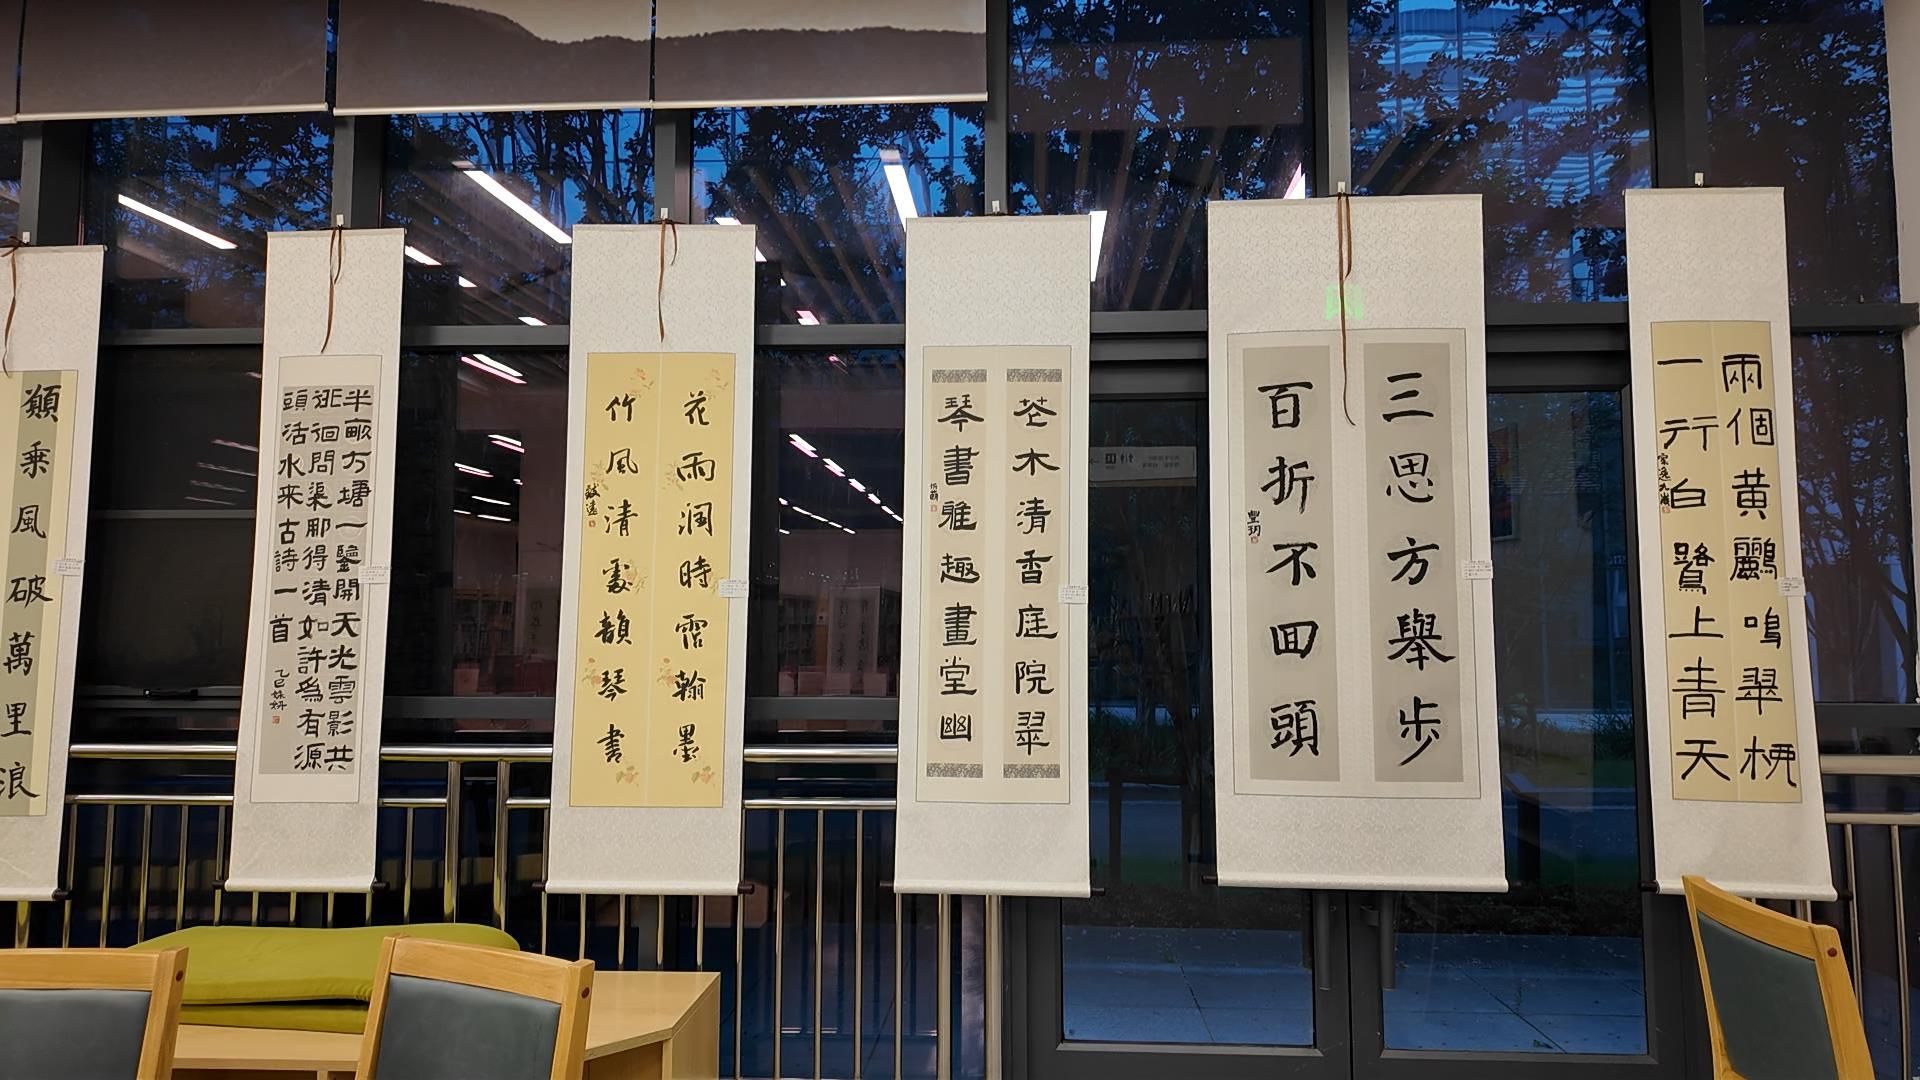 兩個黃鸝鳴翠柳
一行白鷺上青天
三思方舉步
百折不囬頭
豐玥
花木清香庭院翠
琴書雅趣畫堂幽
花雨润時霑翰墨
竹風清處韻琴書
半畝方塘一鑒開天光雲影共
徘徊問渠那得清如許為有源
頭活水来古詩一首
乙巳姝妍
願乘風破萬里浪